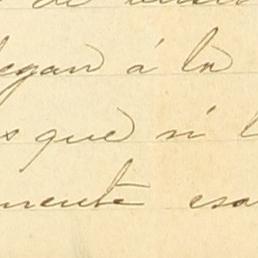 de
legan á la
s que ni l
mente esa